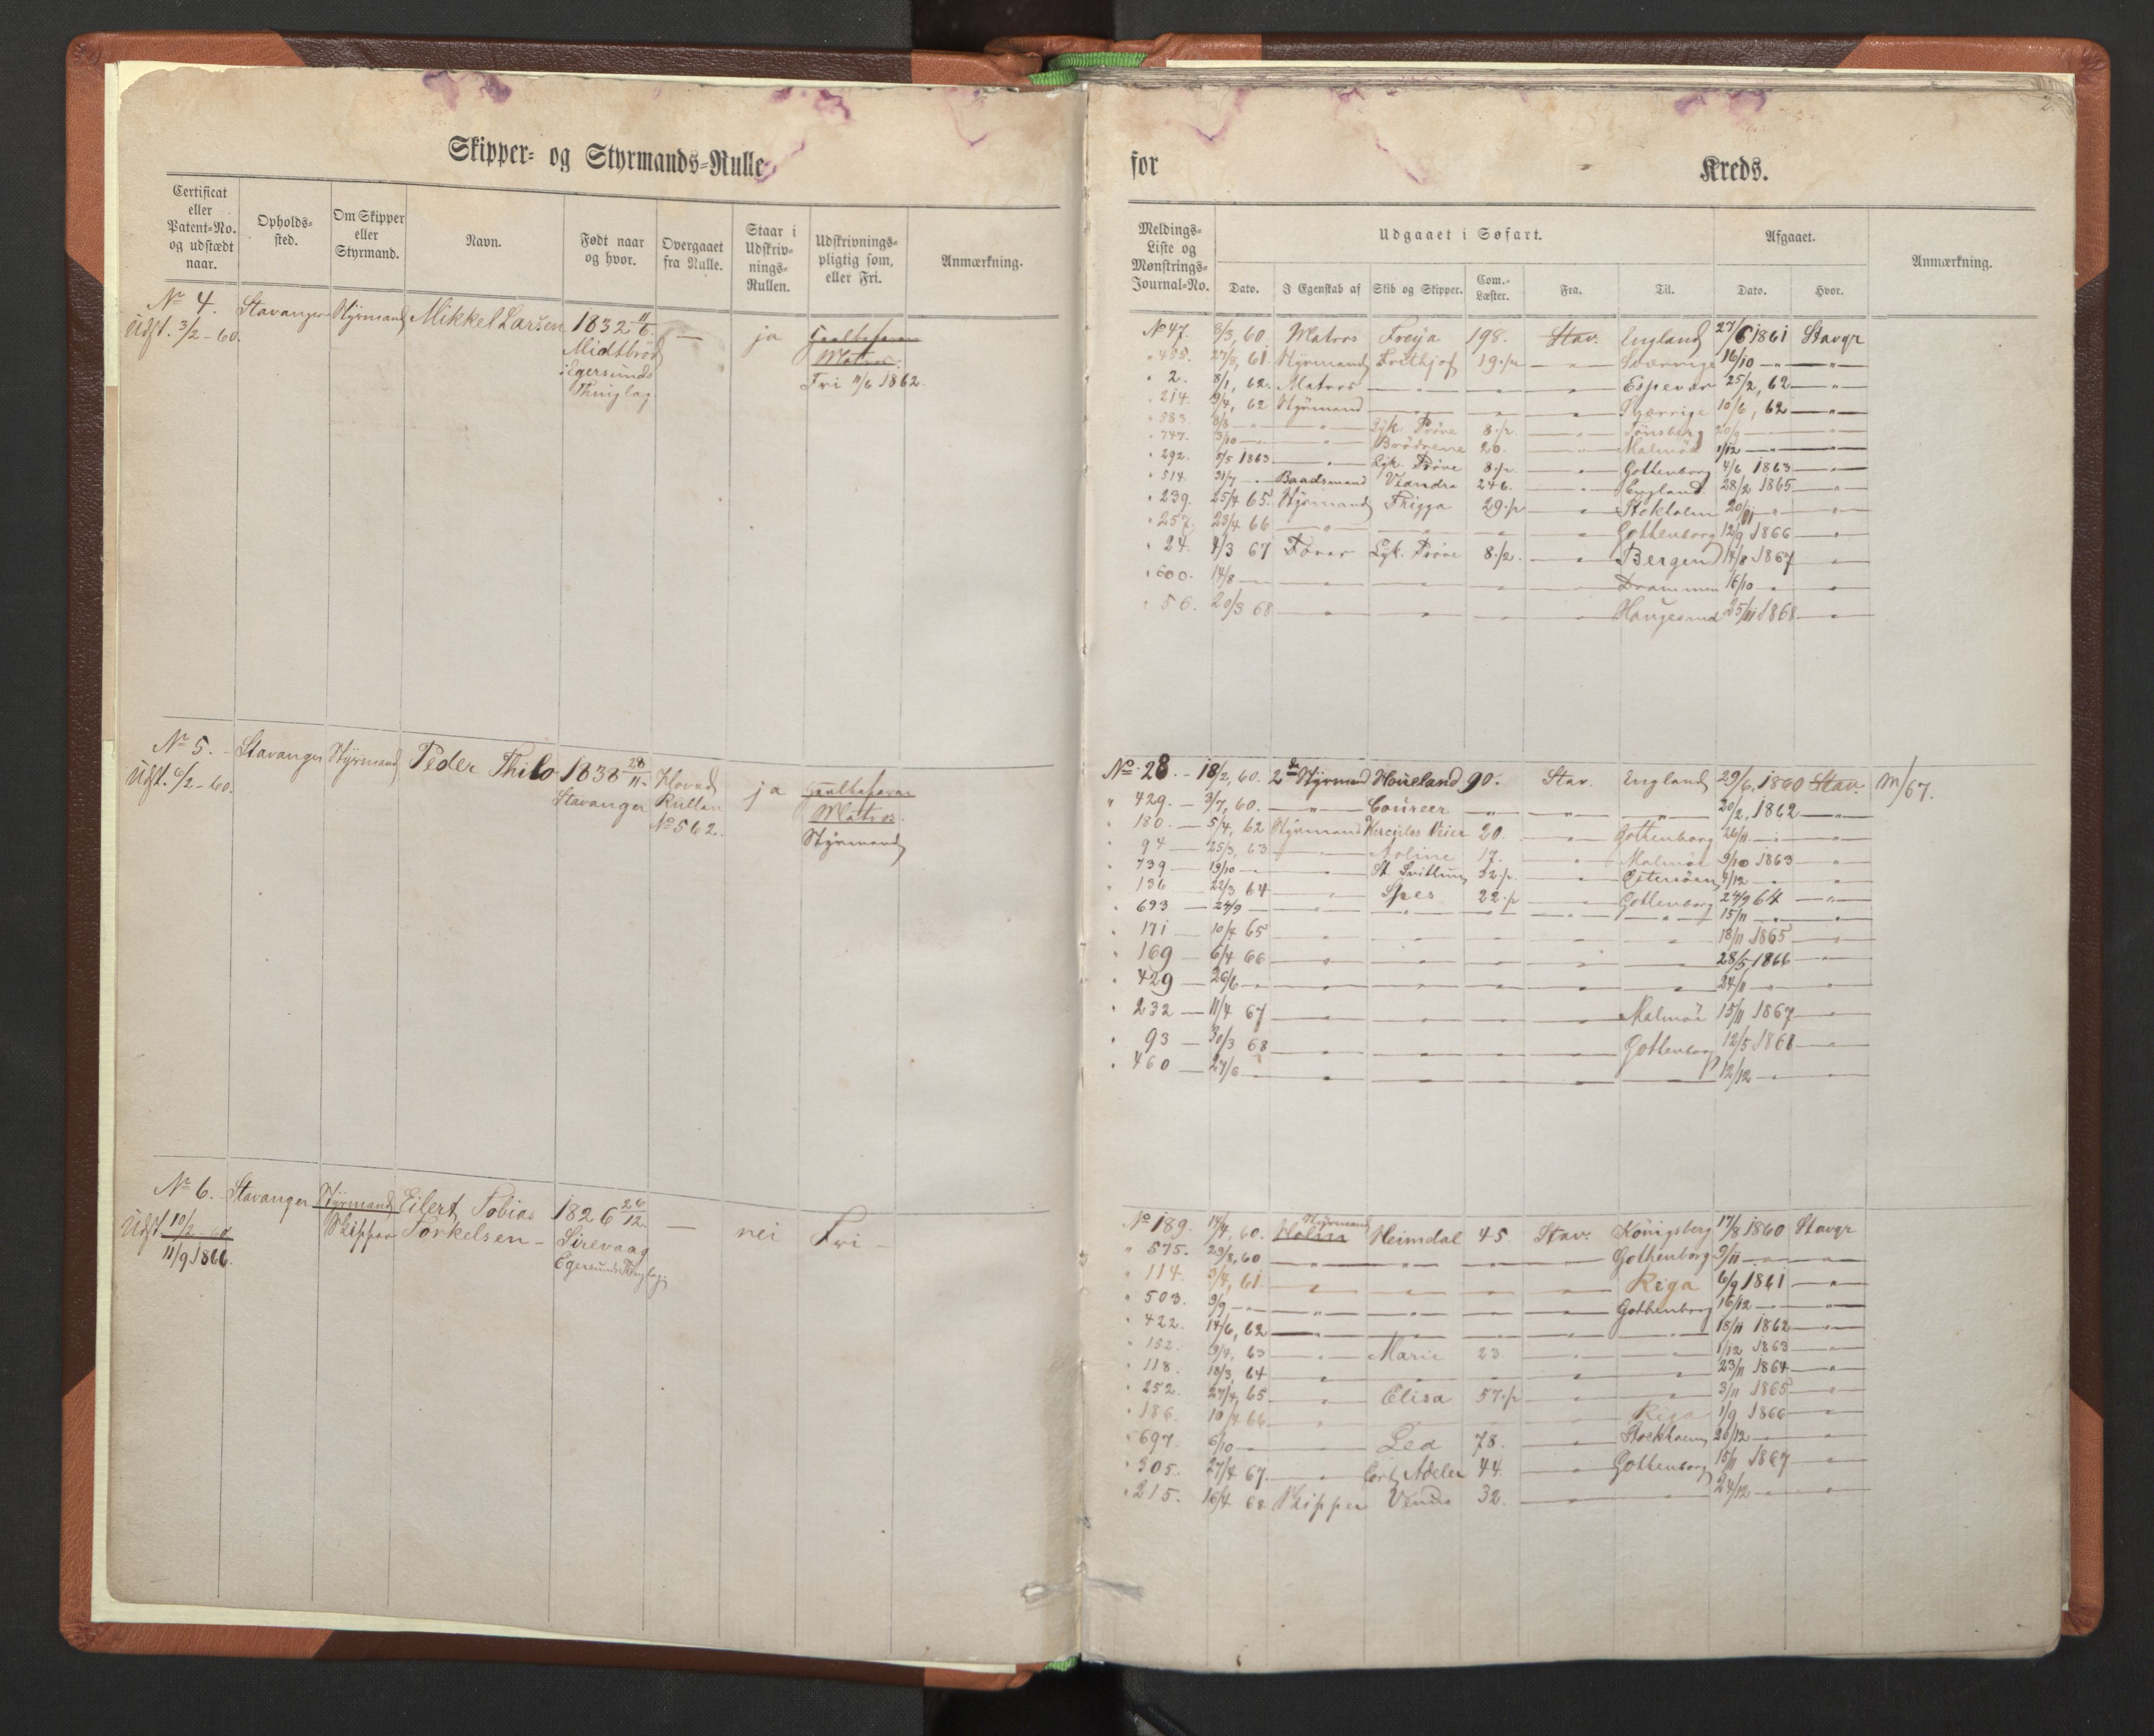 2
Skipper- og Styrmands-Rulle
for Kreds.
Certificat eller Patent-No. og udstædt naar. Opholds-sted. Om Skipper eller Styrmand. Navn. Født naar og hvor. Overgaaet fra Rulle. Staar i Udskriv-nings-Rullen. Udskrivnings-pligtig som, eller Fri. Anmærkning.
Meldings-Liste og Mønstrings-Journal-No. Udgaaet i Søfart. Afgaaet. Anmærkning.
Dato. I Egenskab af Skib og Skipper. Com.-Læster. Fra. Til. Dato. Hvor.
No 4. Stavanger Styrmand Mikkel Larsen 1832 11/6 — ja
Udst. 3/2 - 60. Midtbrød Matros.
i Egersunds Fri 11/6 1862.
Thinglag
No 47. 8/3, 60. Matros Freya 198. Stav. England 27/6 1861 Stavgr
" 27/8, 61. Styrmand Frithjof 19 1/2 — " — Sverrige 16/10 — " — — " —
" 2. 8/1, 62. Matros — " — — " — — " — Espevær 25/2, 62 — " —
" 214. 9/4, 62 Styrmand — " — — " — — " — Sverrige 10/6, 62 — " —
" 383. 8/8 — " — — " — Lyk. Prøve 8 1/2 — " — Tønsberg 20/9 — " — — " —
" 747. 3/10 — " — — " — Brødrene 20. — " — Malmöe 1/12 — " — — " —
" 292. 5/5 1863 — " — Lyk. Prøve 8 1/2 — " — Gothenborg 4/6 1863 — " —
" 514. 31/7 — " Baadsmand 246. — " — England 28/2 1865 — " —
" 239. 25/4 65. Styrmand Frigga 29 1/2 — " — Stokholm 20/11 — " — — " —
" 257. 23/4 66 — " — — " — — " — — " — Gothenborg 12/9 1866 — " —
" 24. 4/3 67 Lyk. Prøve 8 1/2. — " — Bergen 14/8 1867 — " —
" 600. 14/8 — — " — — " — — " — — " — Drammen 16/10 — " — — " —
" 56. 20/3 68 — " — — " — — " — — " — Haugesund 25/11 1868 — " —
No 5. - Stavanger Styrmand Peder Thilo 1838 28/11. Hoved Rullen No 562. ja
Udst. 6/2 - 60. Stavanger Matros.
Styrmand
No 28. - 18/2, 60. 2den Styrmand Houeland 90. Stav. England 29/6, 1860 Stav. M/67.
" 429. — 3/7, 60. — " — Coureer — " — — " — — " — 20/2, 1862 — " —
" 180. — 5/4, 62 Styrmand Hercules Veier 20. — " — Gothenborg 26/11. — " — — " —
" 94 — 25/3, 63 — " — Noline 17. — " — Malmöe 9/10 1863 — " —
" 739 — 13/10 — " — — " — St. Svithun 32 1/2 — " — Østersöen 4/12 — " — — " —
" 136 — 22/3 64 — " — Spes 22 1/2 — " — Gothenborg 24/9 64 — " —
" 693 — 24/9 — — " — — " — — " — — " — — " — 15/11 — " — — " —
" 171 — 10/4 65 — " — — " — — " — — " — — " — 18/11 1865 — " —
" 169 — 6/4 66 — " — — " — — " — — " — — " — 28/5 1866 — " —
" 429 — 26/6 — " — " — — " — — " — — " — — " — 24/11 — " — — " —
" 232 — 11/4 67 — " — — " — — " — — " — Malmöe 15/11 1867 — " —
" 93 — 30/3 68 — " — — " — — " — — " — Gothenborg 12/5 1868 — " —
" 460 — 27/6 — " — " — — " — — " — — " — — " — 12/12 — " — — " —
No 6. - Stavanger Styrmand Eilert Tobias 1826 26/12. — nei Fri -
Udst 10/2 - 60 Skipper Torkelsen - Sirevaag
11/9 1866. Egersunds Thinglag.
No 189. 14/4, 60. Styrmand Heimdal 45. Stav. Königsberg 17/8 1860 Stavgr
" 575. 29/8, 60 — " — — " — — " — — " — Gothenborg 9/11 — " — — " —
" 114. 3/4, 61. — " — — " — — " — — " — Riga 6/9 1861 — " —
" 503. 9/9, — " — — " — — " — — " — — " — Gothenborg 16/12 — " — — " —
" 422. 14/6, 62 — " — — " — — " — — " — — " — 18/11 1862 — " —
" 152. 9/4, 63 — " — Marie 23. — " — — " — 1/12 1863 — " —
" 118. 18/3, 64 — " — — " — — " — — " — — " — 23/11 1864 — " —
" 252. 27/4, 65 — " — Elisa 57 1/2 — " — — " — 3/11 1865 — " —
" 186. 10/4 66 — " — — " — — " — — " — Riga 1/9 1866 — " —
" 697. 6/10 — " — — " — Lea 78. — " — Stockholm 26/12 — " — — " —
" 305. 27/4 67. — " — Cort Adeler 44. — " — Gothenborg 15/11 1867 — " —
" 215. 16/4 68 Skipper Venus 32. — " — — " — 24/12 — " — — " —